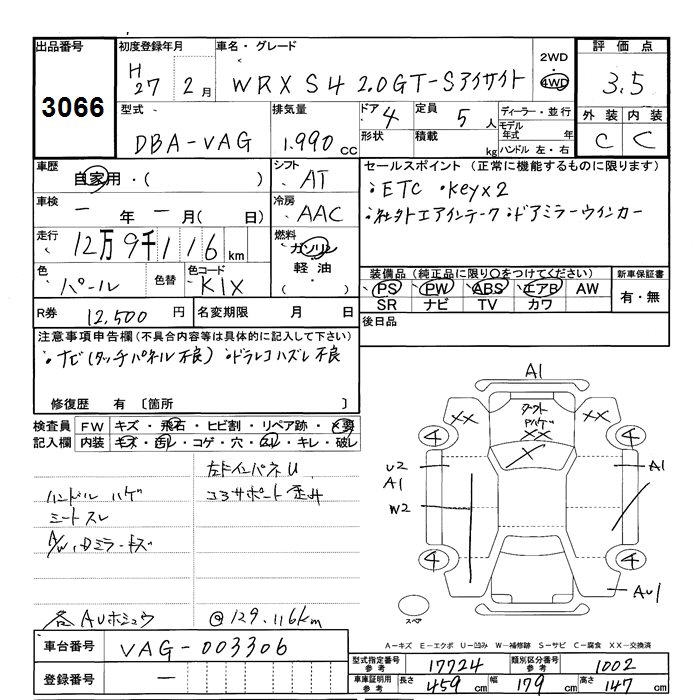 出品番号 初度登録年月 車名・グレード 2WD 4WD 評価点
3066 H27 2月 WRX S4 2.0GT-Sアイサイト 3.5
型式 排気量 ドア 4 定員 5人 ディーラー・並行 外装 内装
DBA-VAG 1.990cc 形状 積載 kg モデル年式 年 C C
ハンドル 左・右
車歴 自家用・( ) シフト AT セールスポイント(正常に機能するものに限ります)
・ETC ・Keyx2
車検 ー年ー月(日) 冷房 AAC ・社外エアインテーク・ドアミラーウインカー
走行 12万9千116km 燃料 ガソリン 軽油 ( )
色 パール 色替 色コード K1X 装備品(純正品に限り○をつけてください) 新車保証書
PS PW ABS エアB AW 有・無
SR ナビ TV カワ
R券 12,500円 名変期限 月 日 後日品
注意事項申告欄(不具合内容等は具体的に記入して下さい)
・ナビ(タッチパネル不良)・ドラレコハズレ不良
修復歴 有〔箇所 〕
検査員記入欄 FW キズ・飛石・ヒビ割・リペア跡・✕要
内装 キズ・汚れ・コゲ・穴・スレ・キレ・破レ
左ドインパネU
ハンドル ハゲ コアサポート歪み
シートスレ
A/W、Dミラーキズ
各AUホシュウ @129.116km
A1
ダクト
XX XX
XX X
4 4
U2 A1
A1
W2
4 4
AU1
スペア
A－キズ E－エクボ U－凹み W－補修跡 S－サビ C－腐食 XX－交換済
車台番号 VAG-003306
型式指定番号参考 17724 類別区分番号参考 1002
登録番号 ー 車庫証明用参考 長さ 459cm 幅 179cm 高さ 147cm